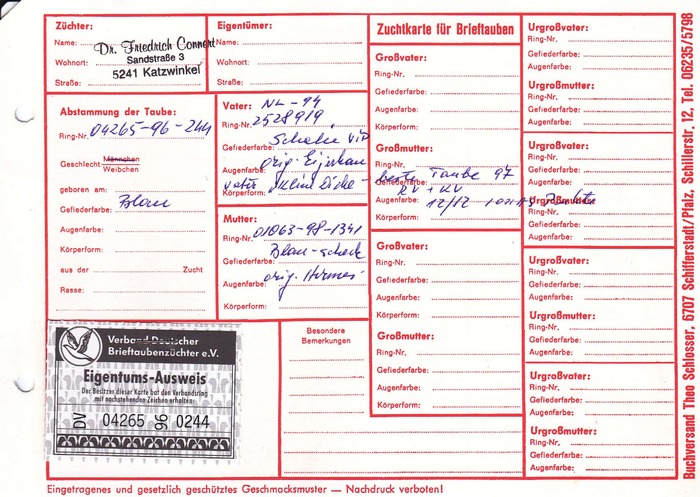 Züchter:
Name:
Dr. Friedrich Connert
Sandstraße 3
Wohnort:
5241 Katzwinkel
Straße:
Eigentümer:
Name:
Wohnort:
Straße:
Zuchtkarte für Brieftauben
Abstammung der Taube:
Ring-Nr. 04265-96-244
Geschlecht: Männchen
Weibchen
geboren am:
Gefiederfarbe: Blau
Augenfarbe:
Körperform:
aus der Zucht
Rasse:
Vater: NL-94
Ring-Nr. 2528919
Gefiederfarbe:
Augenfarbe: orig.
Körperform:
Mutter:
Ring-Nr. 01063-98-1341
Gefiederfarbe: Blau-scheck
Augenfarbe: orig. Hermes-
Körperform:
Großvater:
Ring-Nr.
Gefiederfarbe:
Augenfarbe:
Körperform:
Großmutter:
Ring-Nr. beste Taube 97
Gefiederfarbe: RV + KV
Augenfarbe: 12/12
Körperform:
Großvater:
Ring-Nr.
Gefiederfarbe:
Augenfarbe:
Körperform:
Großmutter:
Ring-Nr.
Gefiederfarbe:
Augenfarbe:
Körperform:
Urgroßvater:
Ring-Nr.
Gefiederfarbe:
Augenfarbe:
Urgroßmutter:
Ring-Nr.
Gefiederfarbe:
Augenfarbe:
Urgroßvater:
Ring-Nr.
Gefiederfarbe:
Augenfarbe:
Urgroßmutter:
Ring-Nr.
Gefiederfarbe:
Augenfarbe:
Urgroßvater:
Ring-Nr.
Gefiederfarbe:
Augenfarbe:
Urgroßmutter:
Ring-Nr.
Gefiederfarbe:
Augenfarbe:
Urgroßvater:
Ring-Nr.
Gefiederfarbe:
Augenfarbe:
Urgroßmutter:
Ring-Nr.
Gefiederfarbe:
Augenfarbe:
Besondere
Bemerkungen
Verband Deutscher
Brieftaubenzüchter e.V.
Eigentums-Ausweis
Der Besitzer dieser Karte hat den Verbandsring
mit nachstehenden Zeichen erhalten:
DV 04265 96 0244
Eingetragenes und gesetzlich geschütztes Geschmacksmuster — Nachdruck verboten!
Buchversand Theo Schlosser, 6707 Schifferstadt/Pfalz, Schillerstr. 12, Tel. 06235/5798